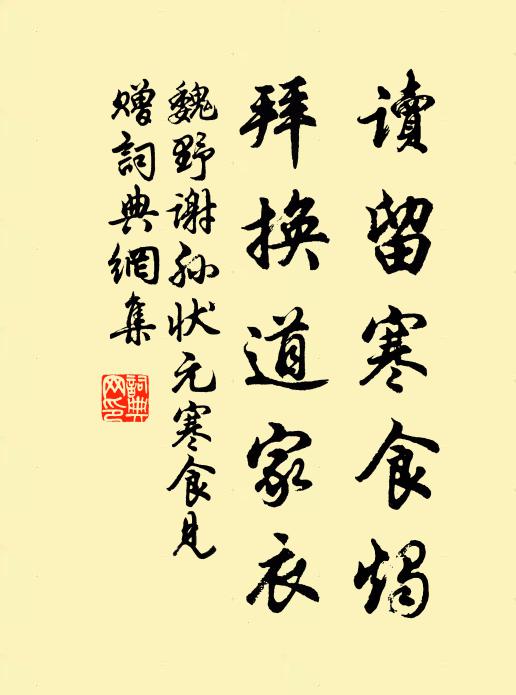 讀留寒食燭
拜換道家衣
魏野謝孫狀元寒食見
贈詞典網集
詞典網印